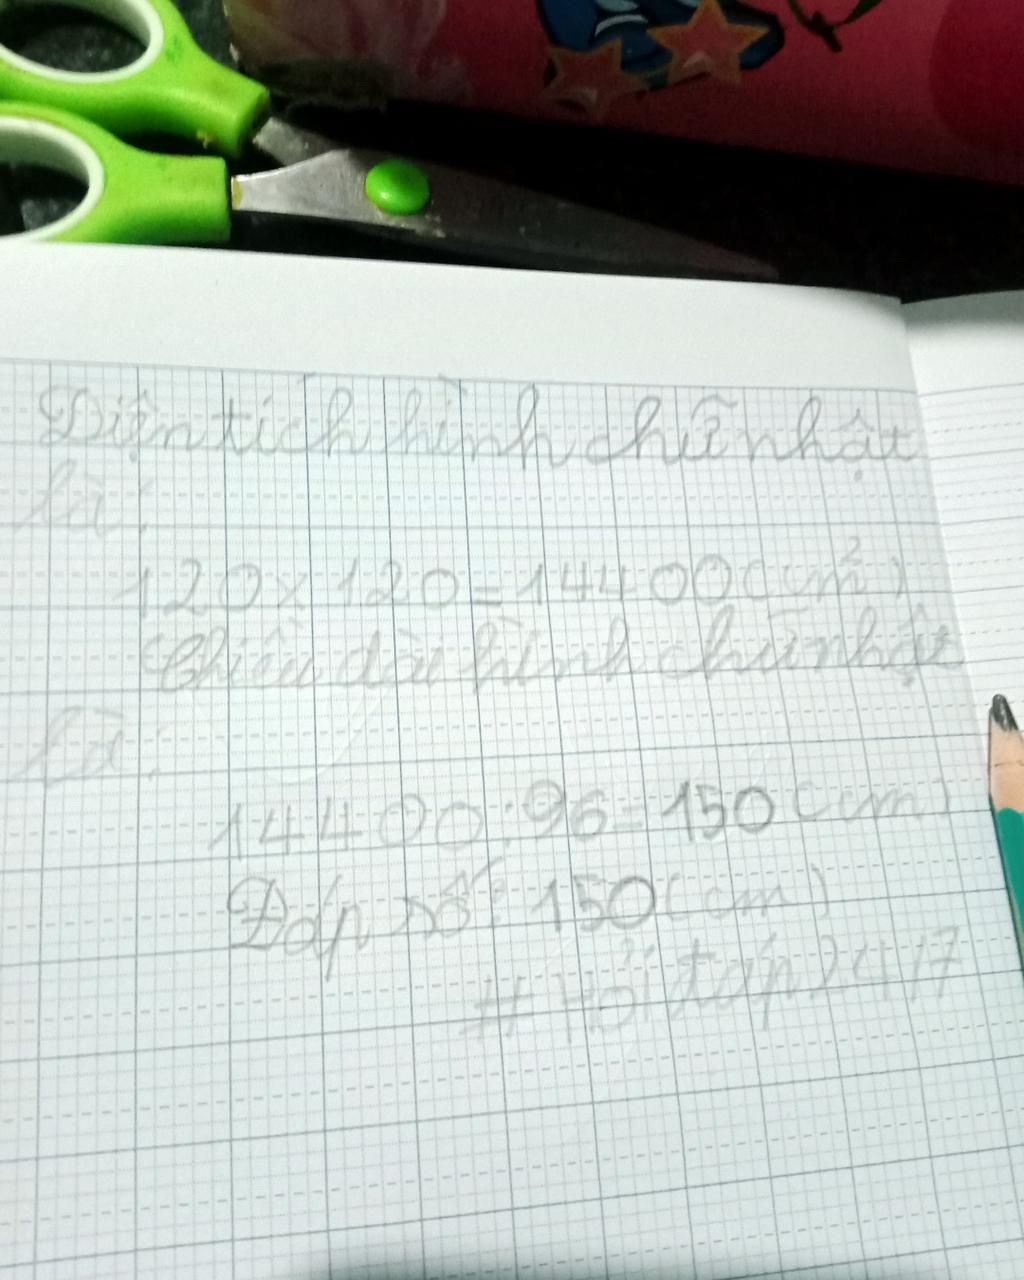 Diện tích hình chữ nhật
là:
120 x 120 = 14400 (cm²)
Chiều dài hình chữ nhật
là:
14400 : 96 = 150 (cm)
Đáp số: 150 (cm)
# Hỏi táp 24/7